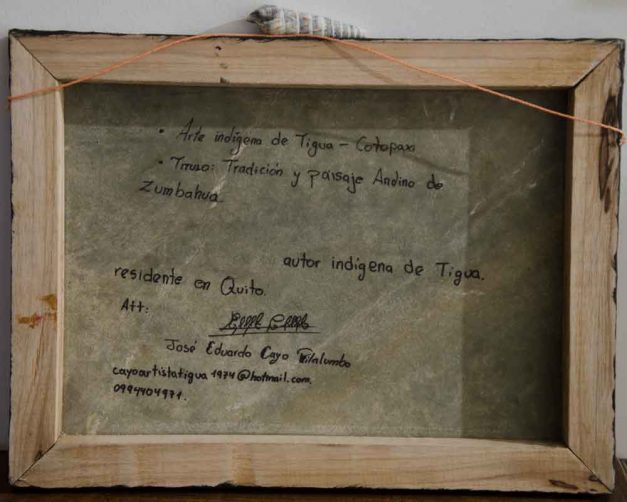 • Arte indígena de Tigua - Cotopaxi
• Título: Tradición y paisaje Andino de
Zumbahua
autor indígena de Tigua.
residente en Quito.
Att:
José Eduardo Cayo Pilalumbo
cayoartistatigua1974@hotmail.com.
0994404971.